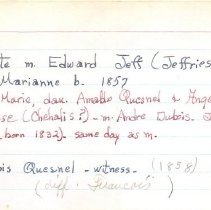 te m. Edward Jeff (Jeffries
Marianne b. 1857
Marie, dau. Amable Quesnel & Ange
se (Chehalis?) - m. Andre Dubois.
born 1832). same day as m.
ois Quesnel - witness. (1858)
(diff. Francois)